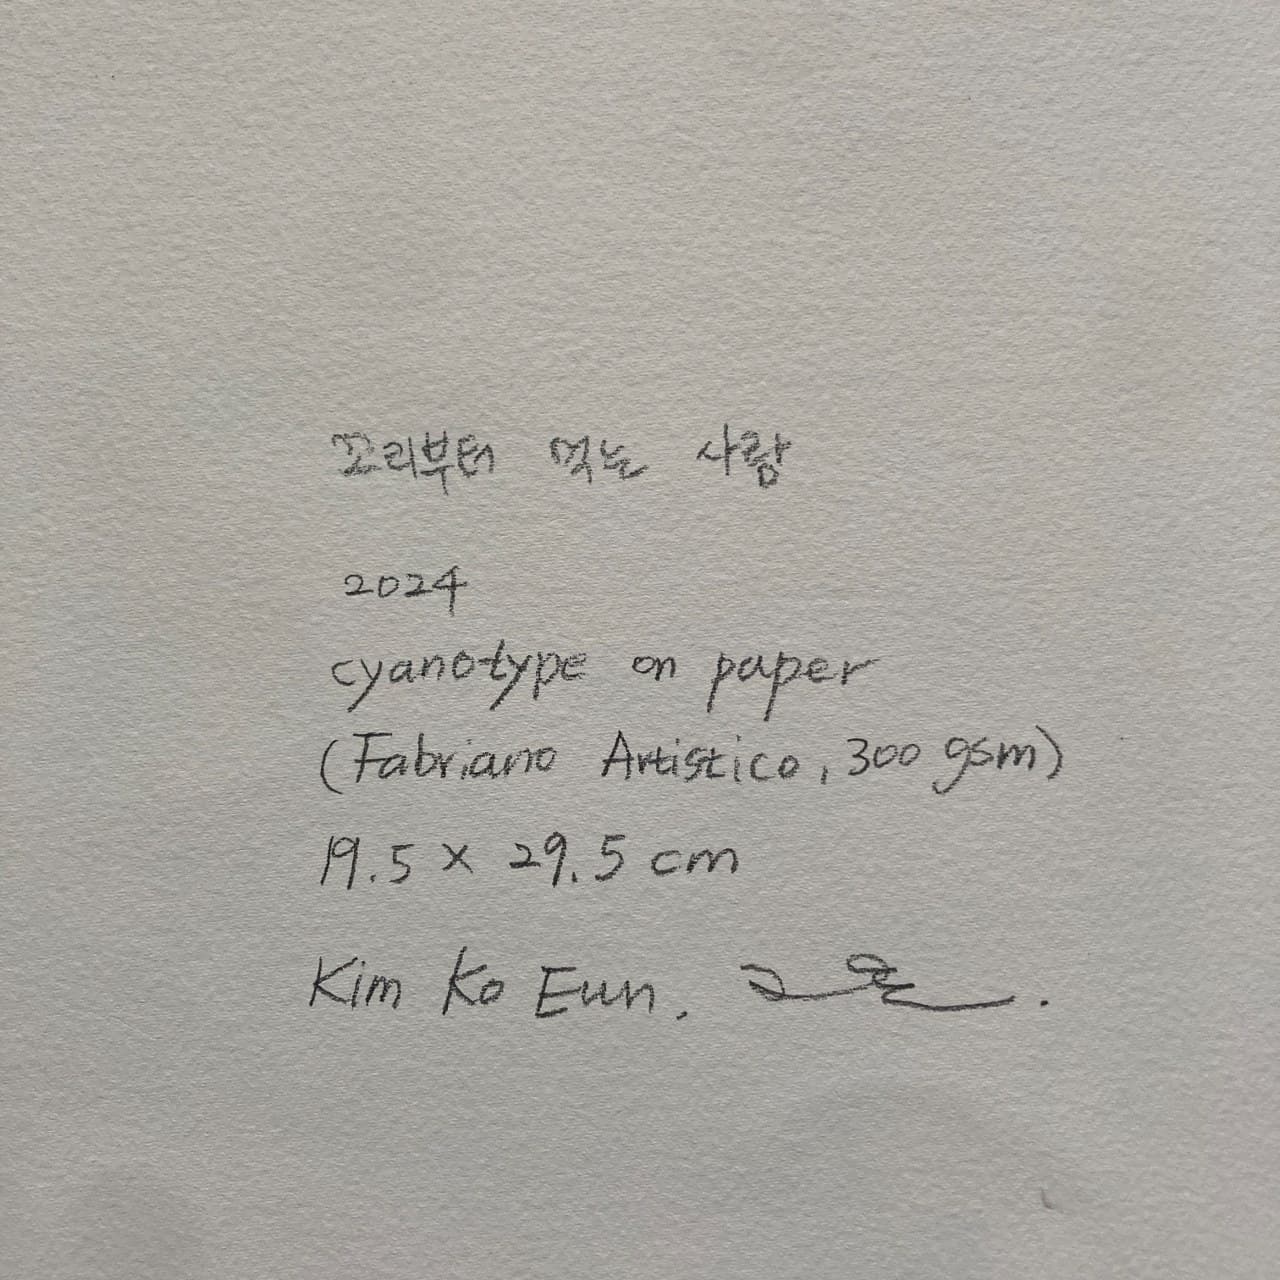 꼬리부터 먹는 사람
2024
cyanotype on paper
(Fabriano Artistico, 300 gsm)
19.5 x 29.5 cm
Kim Ko Eun. 고은.